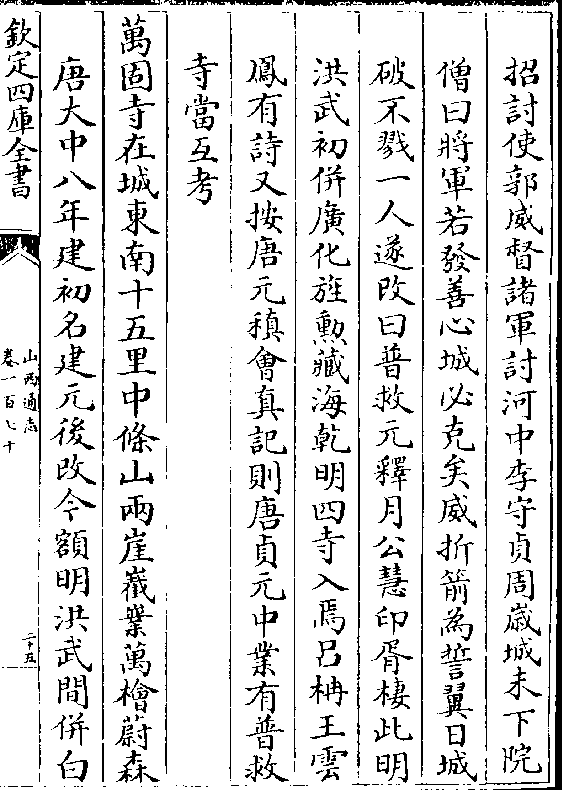 招討使郭威督諸軍討河中李守貞周歲城未下院
僧曰將軍若發善心城必克矣威折箭為誓翼日城
破不戮一人遂改曰普救元釋月公慧印胥棲此明
洪武初併廣化旌勲藏海乾明四寺入焉吕柟王雲
鳳有詩又按唐元稹會真記則唐貞元中業有普救
寺當互考
萬固寺在城東南十五里中條山兩崖嶻嶪萬檜蔚森
唐大中八年建初名建元後改今額明洪武間併白
欽定四庫全書
山西通志
卷一百七十
二十五